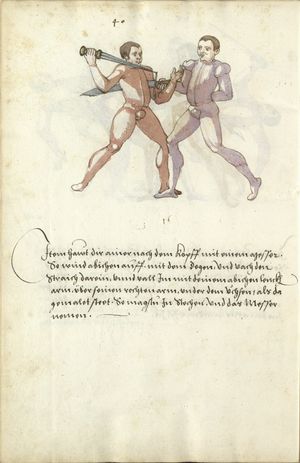 40
16
Item haut dir ainer nach dem Kopff mit einem Messer.
So wind abichen auff mit dem Degen, vnd vach den
Straich darein, vnnd vall Im mit deinem abichen lenck
arm, vber seinen rechten arm, vnder dem Vchsen, als da
gemalet steet. So magstu In stechen, vnd das Messer
nemen.